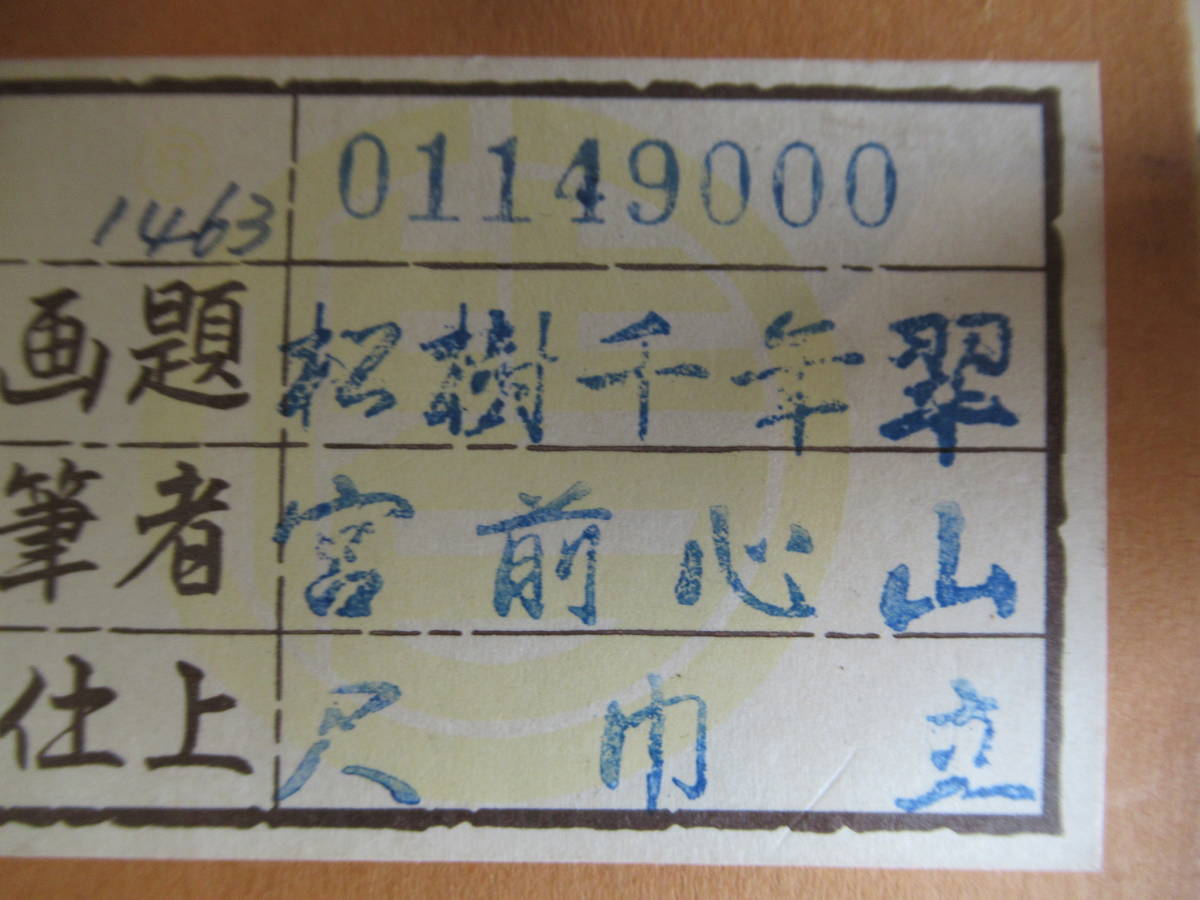 1463 01149000
画題 松樹千年翠
筆者 宮前心山
仕上 尺巾立